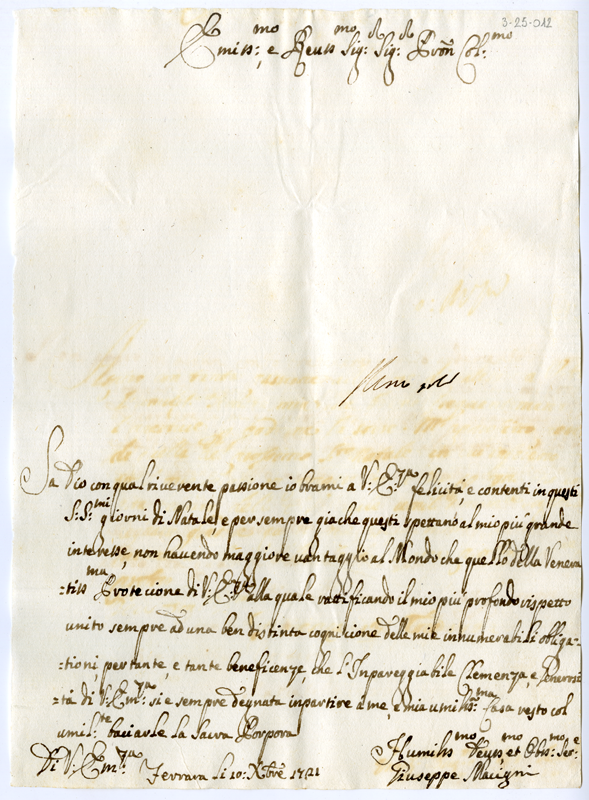 3-25-012
Emiss:mo, e Reuss:mo Sig:re Sig:re Pron Col:mo
Sa Dio con qual riverente passione io brami a V: E:za felicità, e contenti in questi
S:S:mi giorni di Natale, e per sempre già che questi spettano al mio più grande
interesse, non havendo maggiore vantaggio al Mondo che quello della Venera-
=tiss:ma Protecione di V: E:za alla quale rattificando il mio più profondo rispetto
unito sempre ad una ben distinta cognicione delle mie innumerabili obliga-
=tioni, per tante, e tante beneficenze, che l'Inpareggiabile Clemenza, e Generosi
=tà di V: Em:za si è sempre degnata inpartire a me, e mia umiliss:ma Casa resto col
umil:te baciarle la Sacra Porpora
Di V: Em:za
Ferrara li 10: Xbre 1721
Humiliss:mo Deuss:mo et Obl:mo Ser:e
Giuseppe